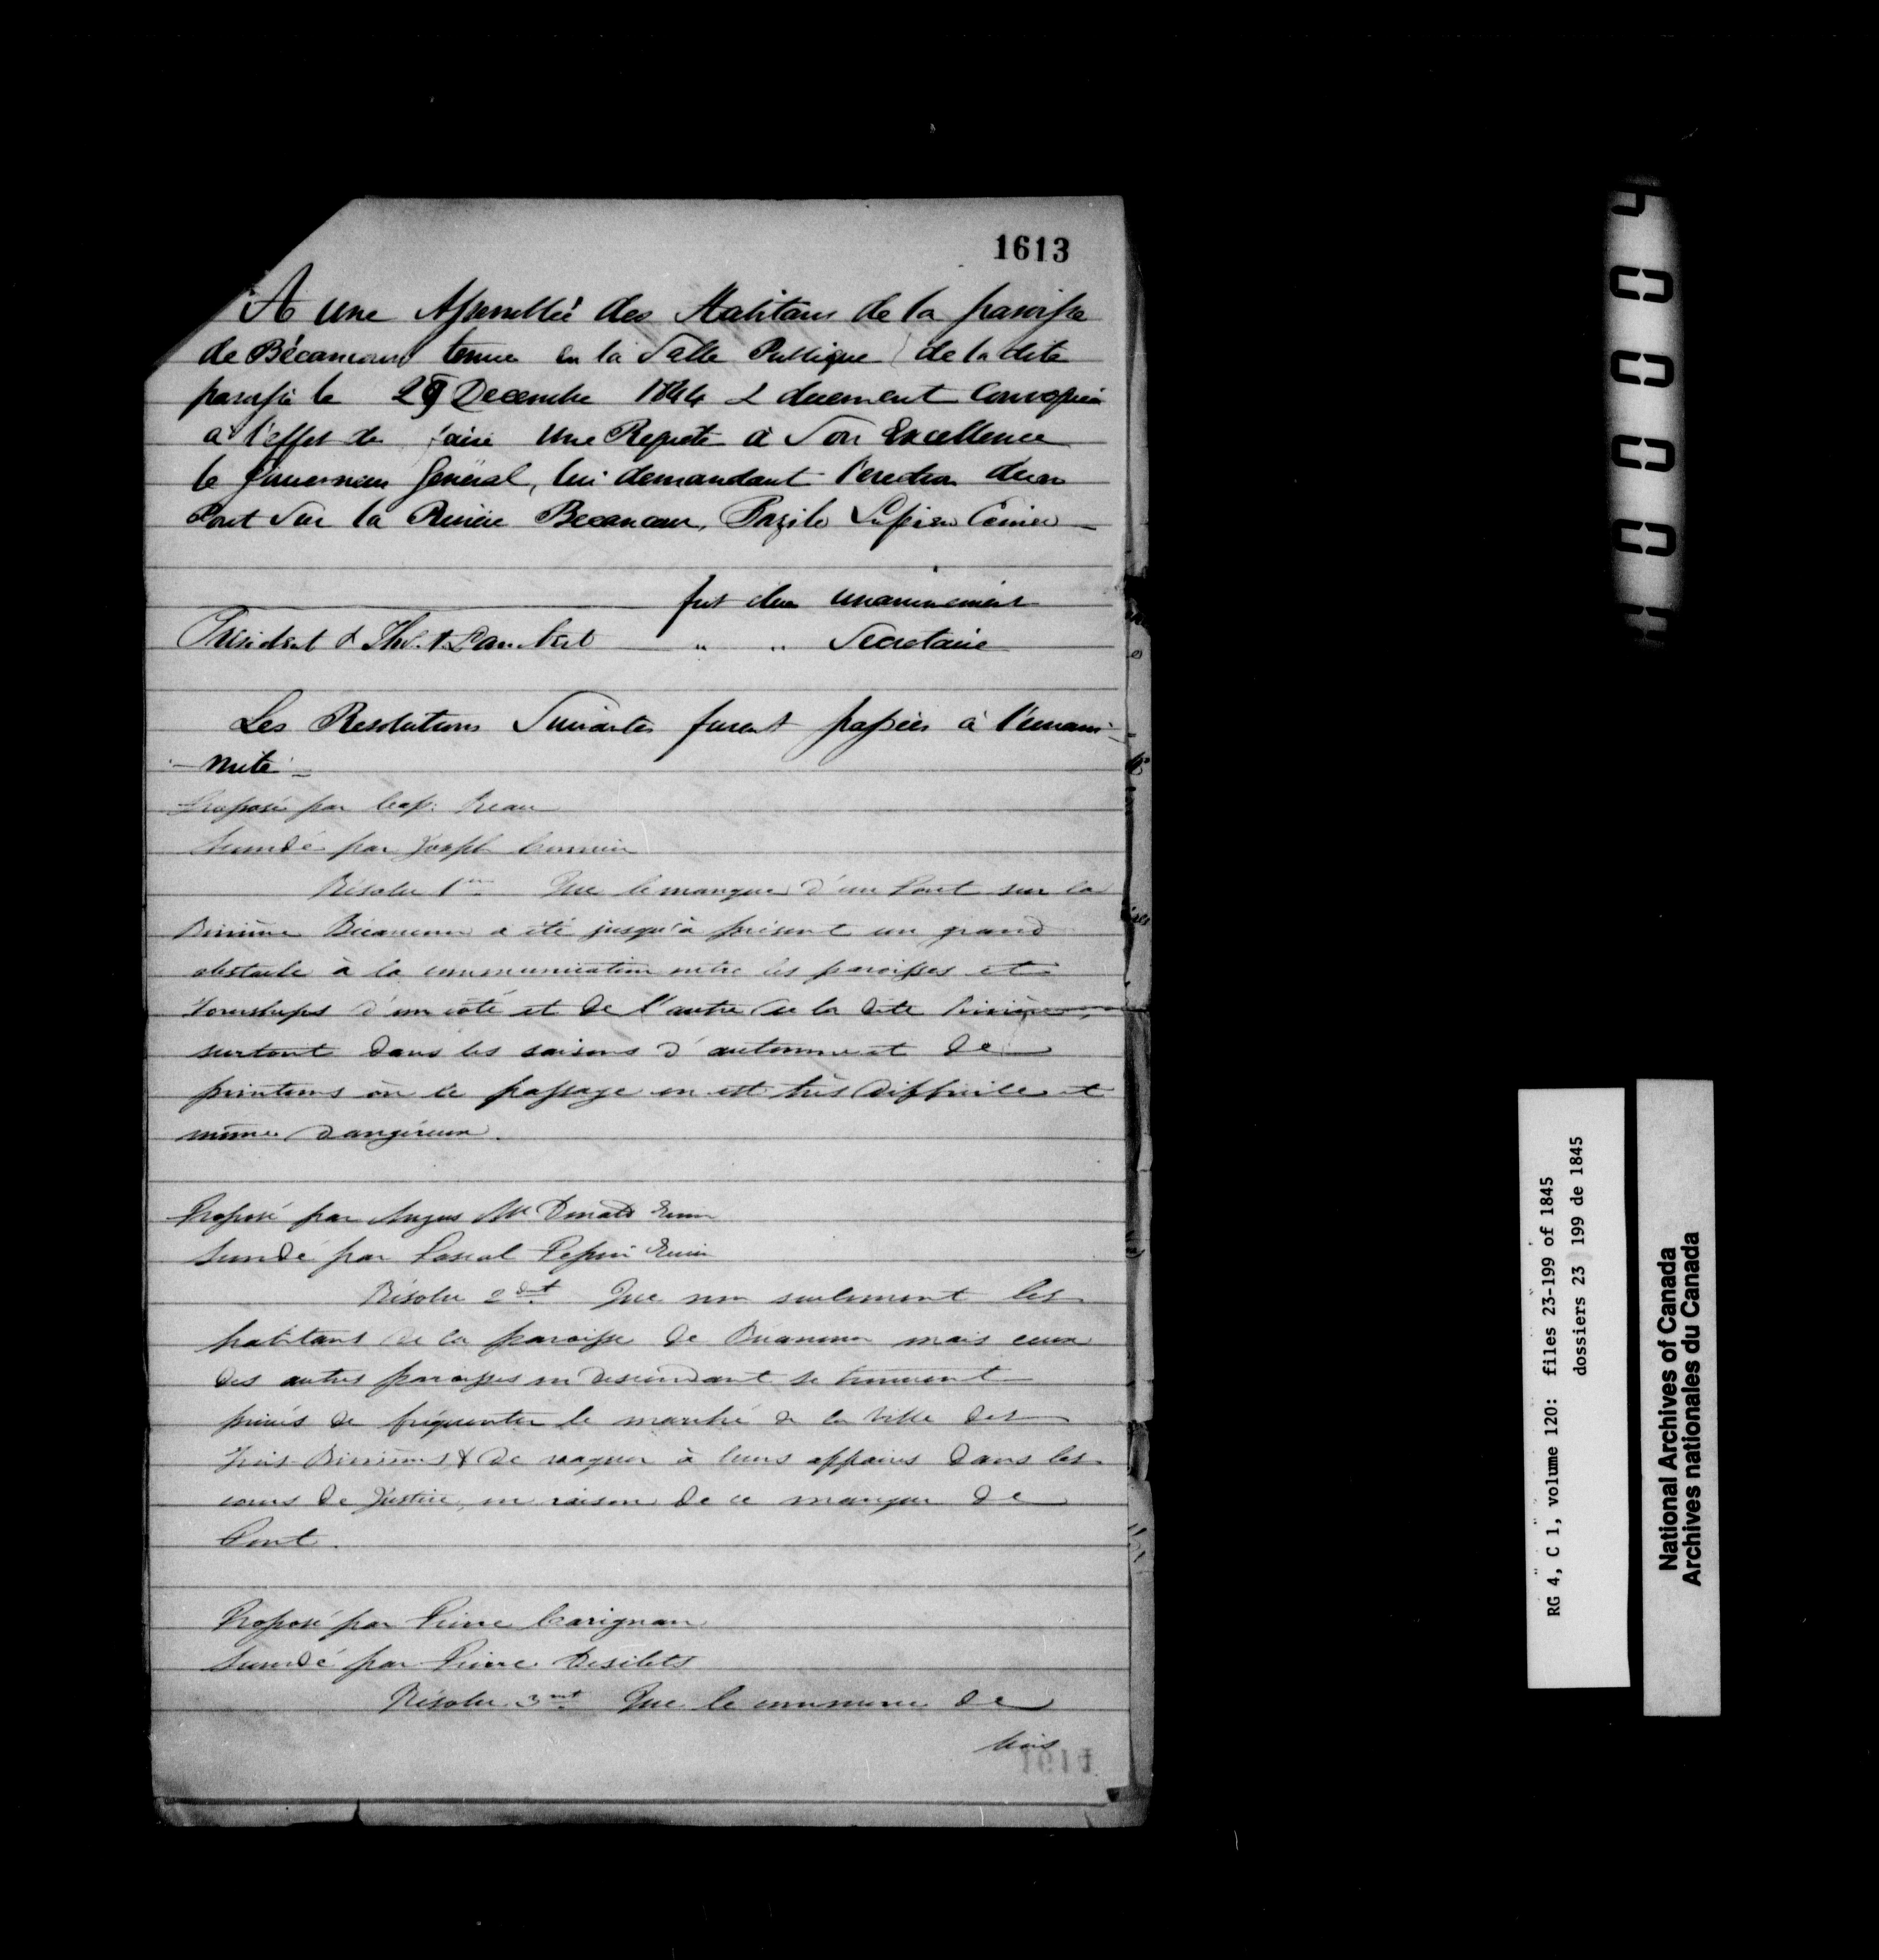 1613
A une Assemblée des Habitans de la paroisse
de Bécancour tenue en la Salle Publique de la dite
paroisse le 29 Decembre 1844 & duement Convoquée
à l'effet de faire Une Requete à Son Excellence
le Gouverneur Général, lui demandant l'erection d'un
Pont sur la Riviere Becancour, Bazile Lupien Ecuier
fut elu unanimement
President & Lambert " " Secretaire
Les Resolutions Suivantes furent passées à l'unani-
-mité -
Proposé par Beau
Secondé par Joseph
Résolu 1er Que le manque d'un Pont sur la
Rivière Bécancour a été jusqu'à présent un grand
obstacle à la communication entre les paroisses et
Townships d'un coté et de l'autre de la dite Rivière,
surtout dans les saisons d'automne et de
printems où le passage en est très difficile et
même dangéreux.
Proposé par Angus McDonald Ecuier
Secondé par Pascal Pepin Ecuier
Résolu 2ent Que non seulement les
habitans de la paroisse de Bécancour mais ceux
des autres paroisses en descendant se trouvent
privés de fréquenter le marché de la Ville des
Trois-Rivières & de vaquer à leurs affaires dans les
cours de Justice, en raison de ce manque de
Pont.
Proposé par Pierre Carignan
Secondé par Pierre Desilets
Résolu 3ent Que le commerce de
bois
1614
40000
RG 4, C 1, volume 120: files 23-199 of 1845
dossiers 23 199 de 1845
National Archives of Canada
Archives nationales du Canada